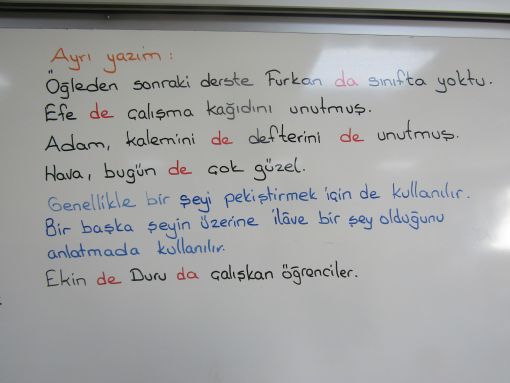 Ayrı yazım :
Öğleden sonraki derste Furkan da sınıfta yoktu.
Efe de çalışma kağıdını unutmuş.
Adam, kalemini de defterini de unutmuş.
Hava, bugün de çok güzel.
Genellikle bir şeyi pekiştirmek için de kullanılır.
Bir başka şeyin üzerine ilâve bir şey olduğunu
anlatmada kullanılır.
Ekin de Duru da çalışkan öğrenciler.